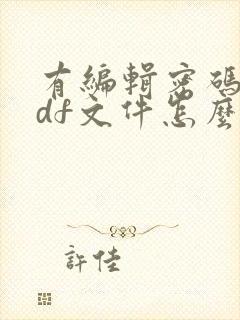 有編輯密碼
df文件怎麼
許佳